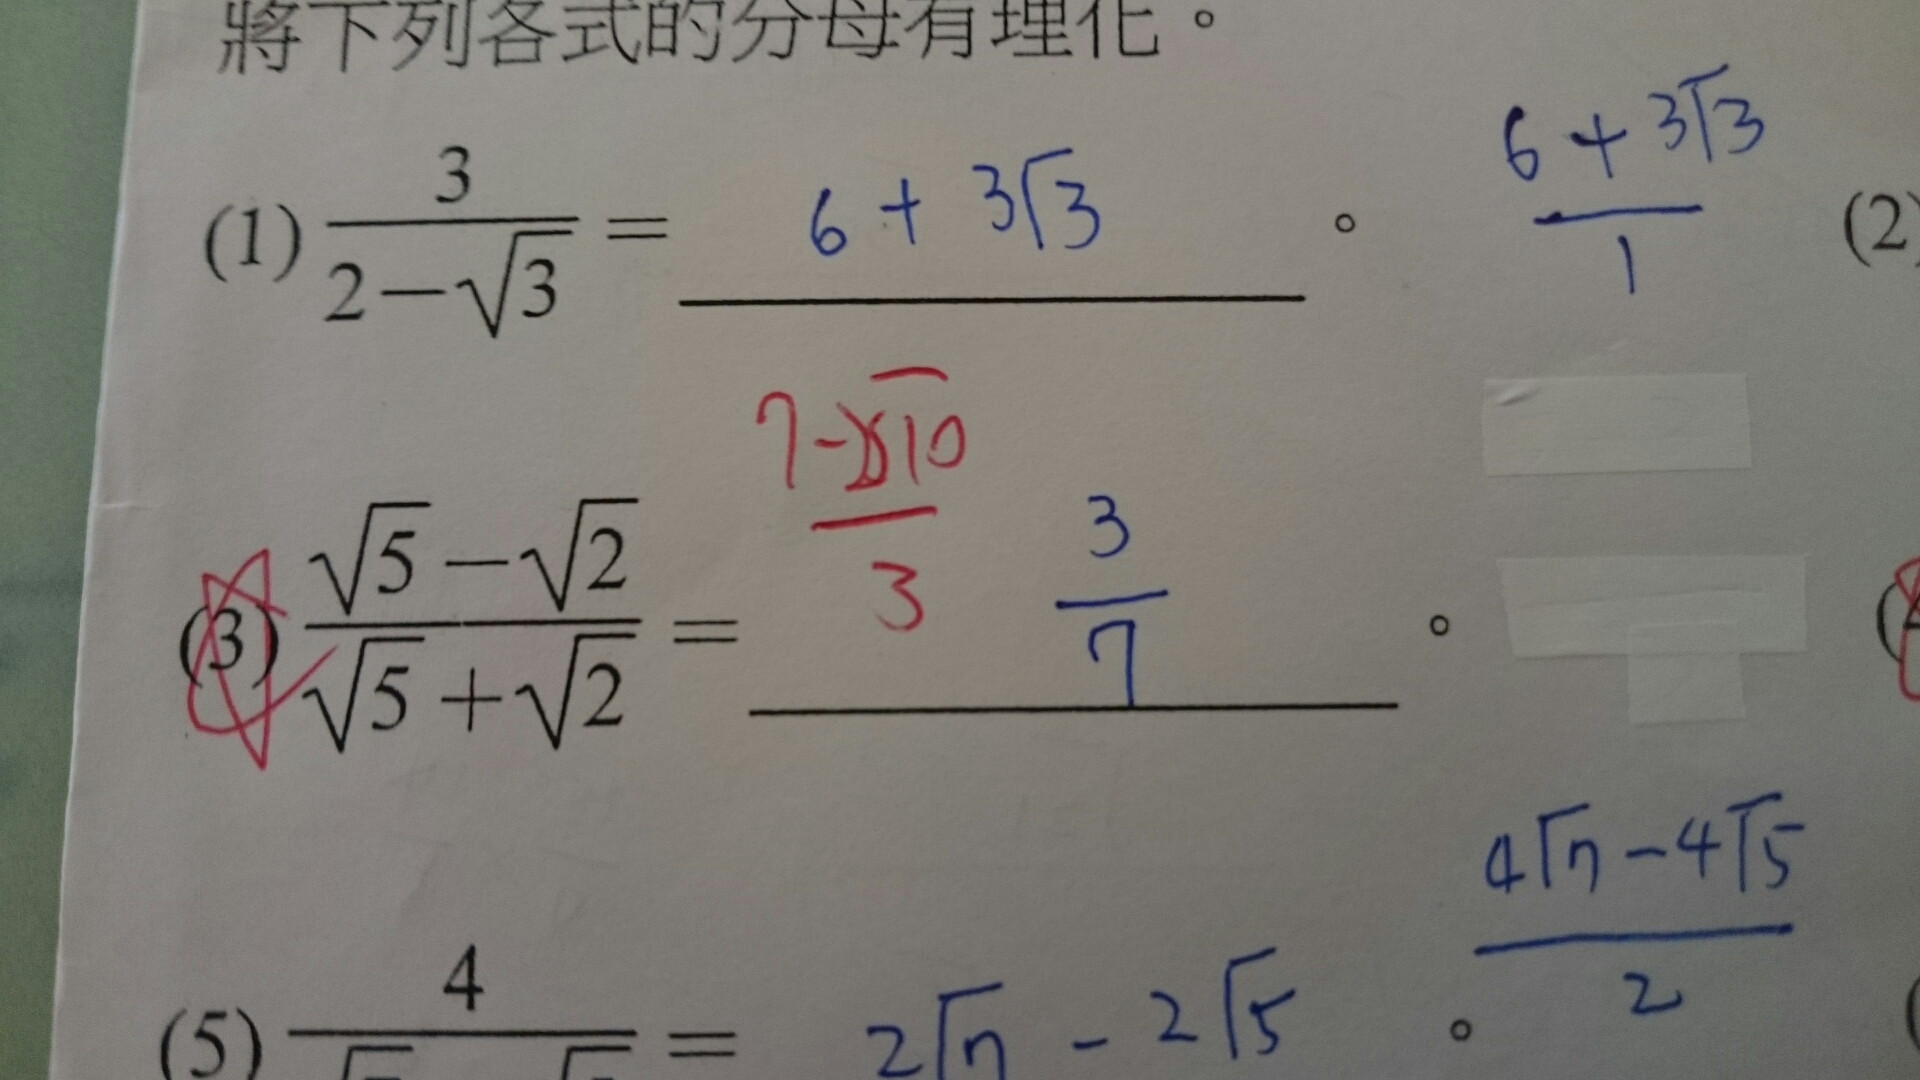 將下列各式的分母有理化。
(1) 3/(2-√3) = 6 + 3√3 。 (6 + 3√3)/1 (2)
(3) (√5-√2)/(√5+√2) = (7-2√10)/3 3/7 。
(5) 4/ = 2√7 - 2√5 。 (4√7 - 4√5)/2